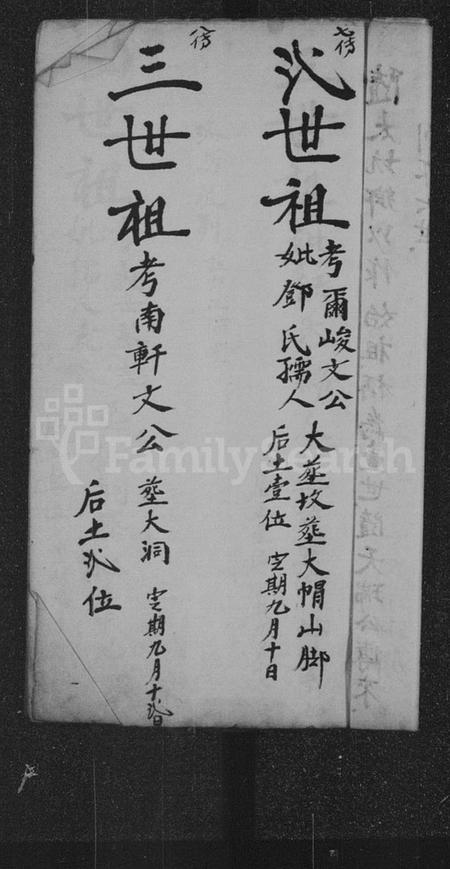 七傍
弍世祖
考爾峻文公
妣鄧氏孺人
大塋坟塟大帽山脚
后土壹位 定期九月十日
八傍
三世祖
考南軒文公 塟大洞 定期九月十弍日
后土弍位
FamilySearch